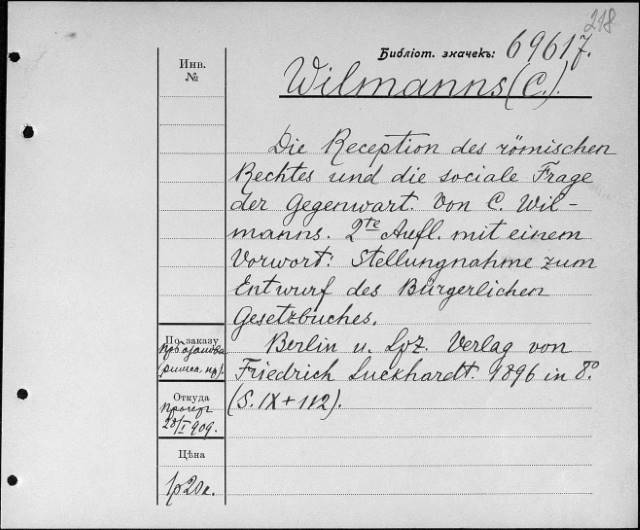 218
Библіот. значекъ: 69617.
Инв.
№
Wilmanns (C.).
Die Reception des römischen
Rechtes und die sociale Frage
der Gegenwart. Von C. Wil-
manns. 2te Aufl. mit einem
Vorwort: Stellungnahme zum
Entwurf des Bürgerlichen
Gesetzbuches.
Berlin u. Lpz. Verlag von
Friedrich Luckhardt. 1896 in 8º
(S. IX + 112).
По заказу
Откуда
20/I 909.
Цѣна
1р20к.